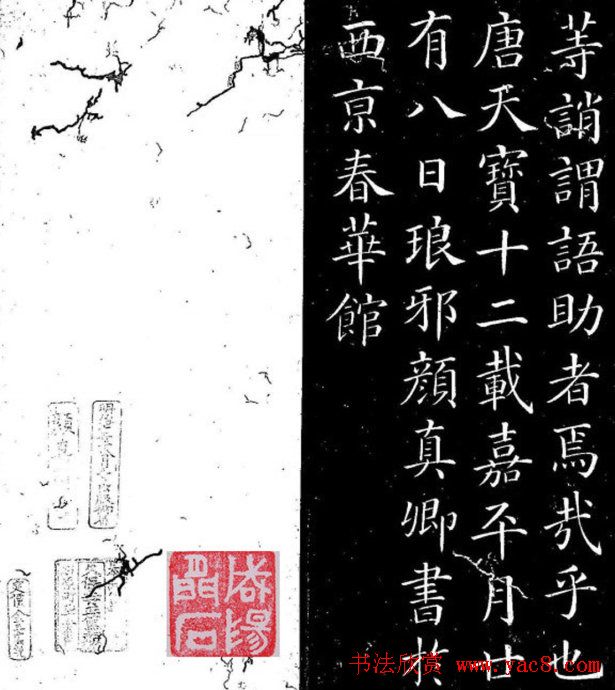 等誚謂語助者焉哉乎也
唐天寶十二載嘉平月廿
有八日琅邪顏真卿書於
西京春華館
书法欣赏 www.yac8.com